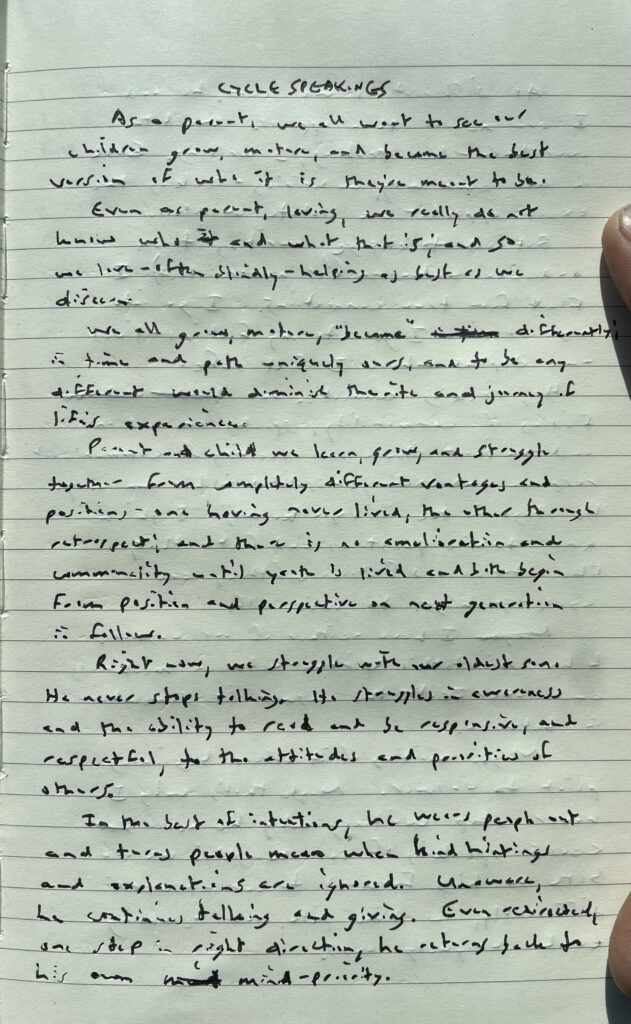 CYCLE SPEAKINGS
As a parent, we all want to see our
children grow, mature, and become the best
version of who it is they're meant to be.
Even as parent, loving, we really do not
know who and what that is; and so
we live-often blindly-helping as best as we
discern.
We all grow, mature, "become" differently;
in time and path uniquely ours, and to be any
different would diminish the rite and journey of
life's experience.
Parent and child we learn, grow, and struggle
together from completely different vantages and
positions - one having never lived, the other through
retrospect; and there is no amelioration and
commonality until youth is lived and both begin
from position and perspective on next generation
to follow.
Right now, we struggle with our oldest son.
He never stops talking. He struggles in awareness
and the ability to read and be responsive, and
respectful, to the attitudes and priorities of
others.
In the best of intentions, he wears people out
and turns people mean when kind hintings
and explanations are ignored. Unaware,
he continues talking and giving. Even redirected,
one step in right direction, he returns back to
his own mind-priority.